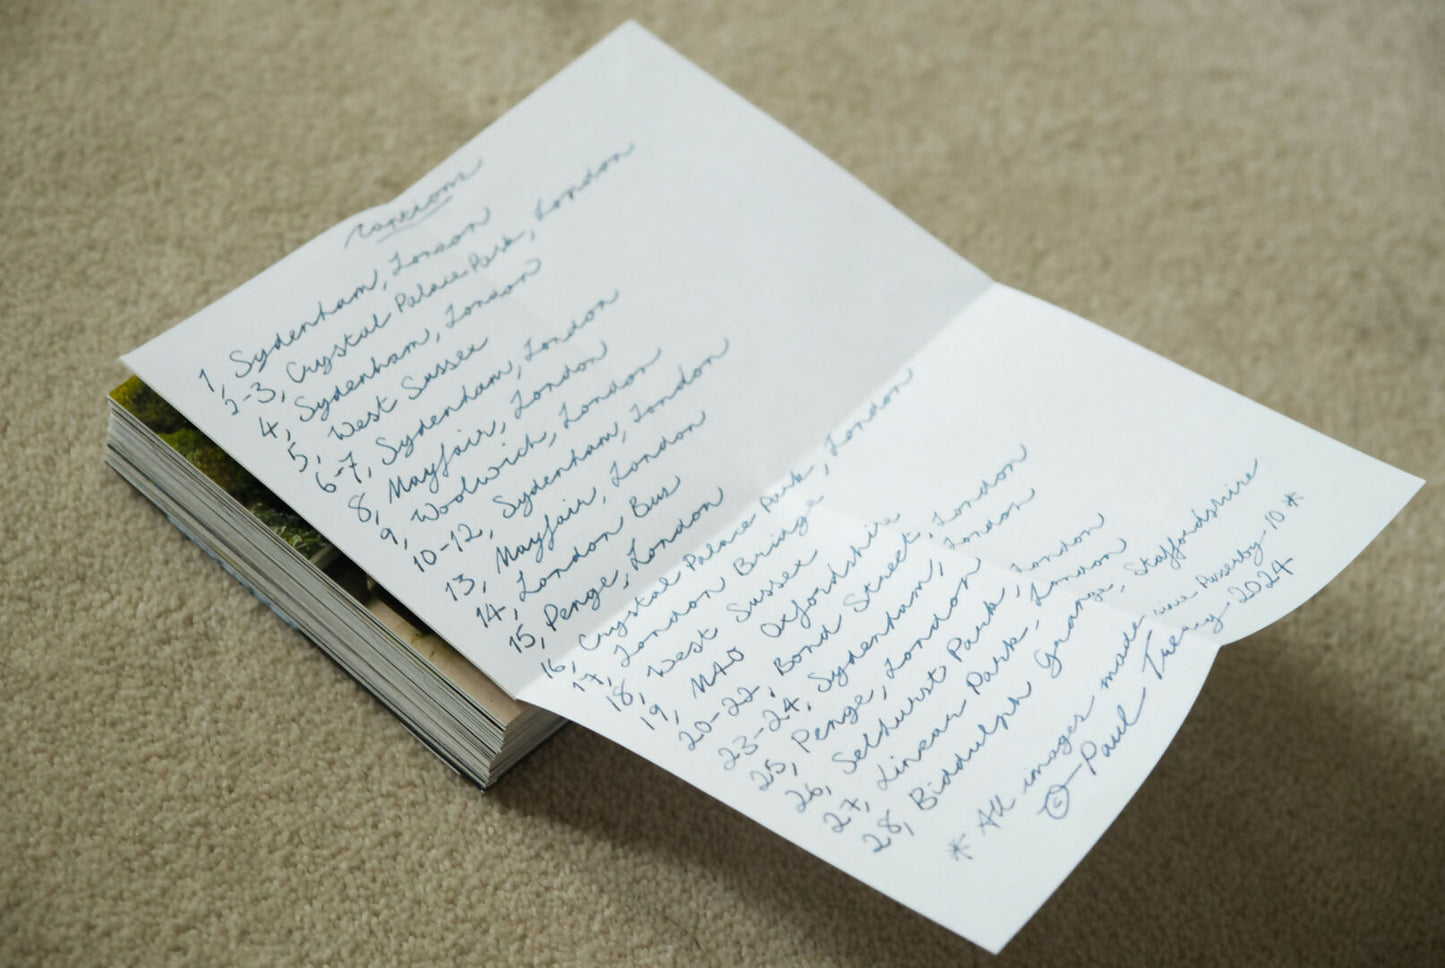 Captions
1, Sydenham, London
2-3, Crystal Palace Park, London
4, Sydenham, London
5, West Sussex
6-7, Sydenham, London
8, Mayfair, London
9, Woolwich, London
10-12, Sydenham, London
13, Mayfair, London
14, London Bus
15, Penge, London
16, Crystal Palace Park, London
17, London Bridge
18, West Sussex
19, M40 Oxfordshire
20-22, Bond Street, London
23-24, Sydenham, London
25, Penge, London
26, Selhurst Park, London
27, Linear Park, London
28, Biddulph Grange, Staffordshire
* All images made since Passerby-10 *
© - Paul Treacy - 2024